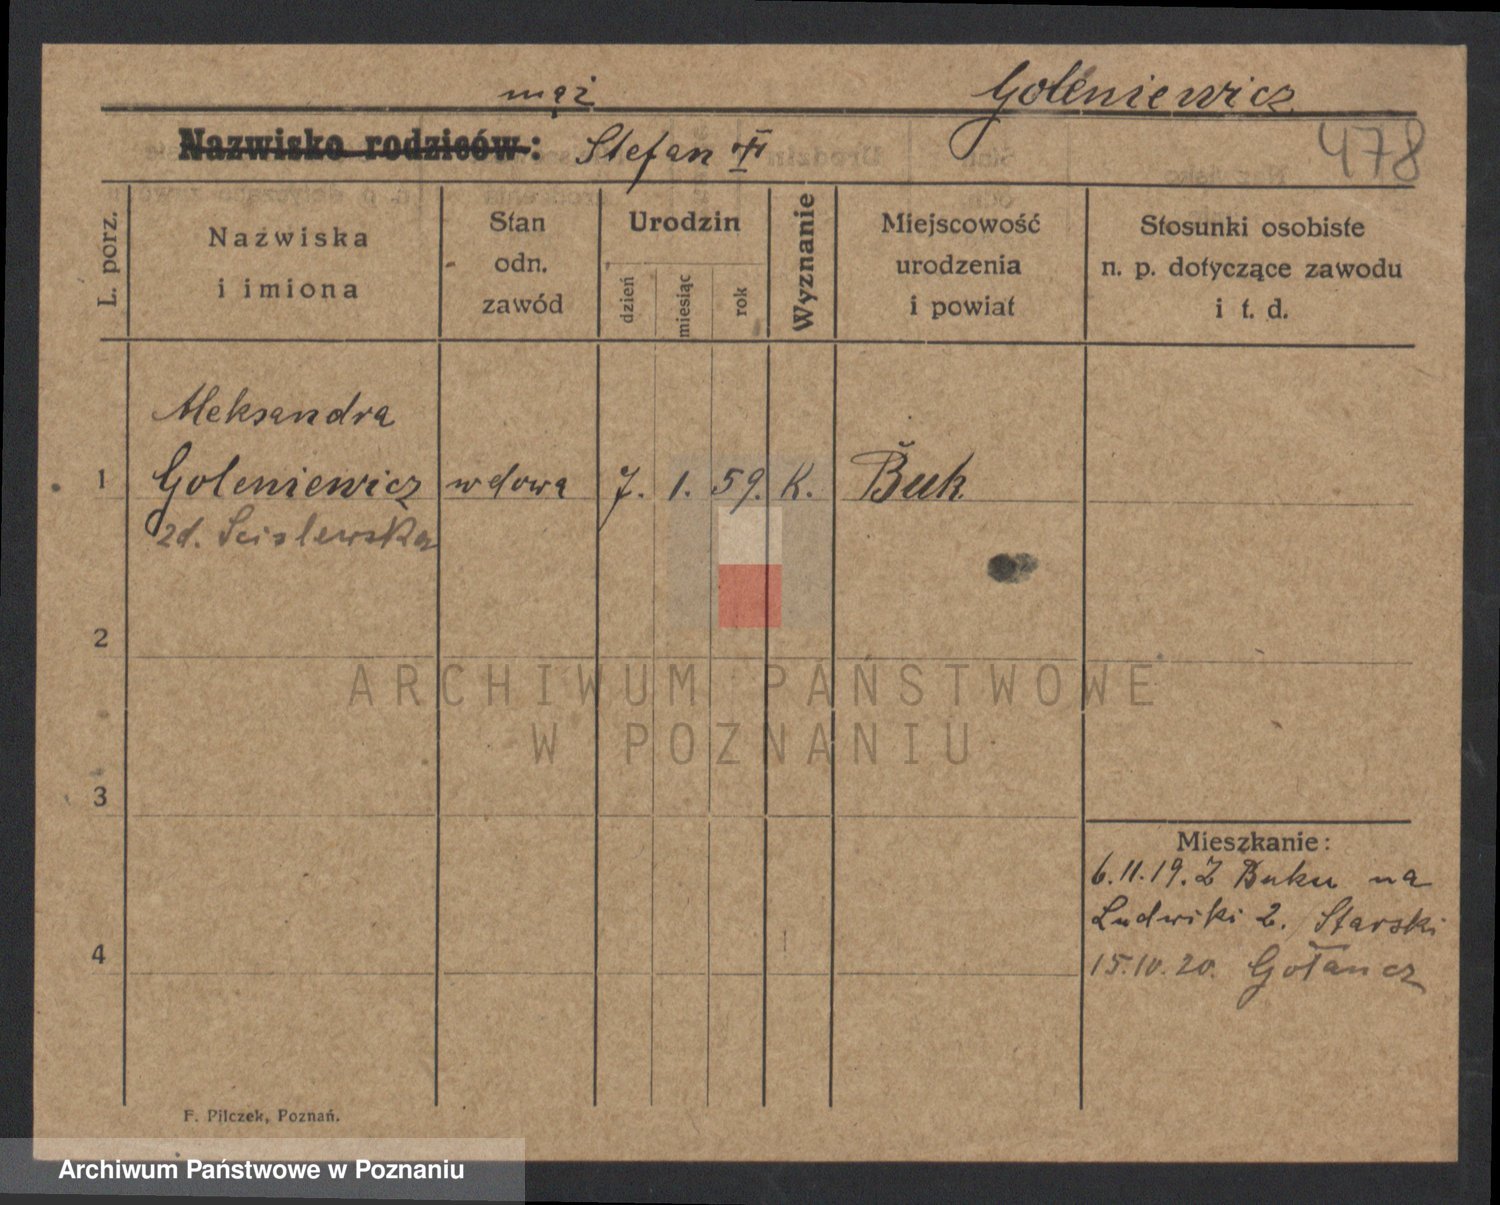 mąż Goleniewicz
Nazwisko rodziców: Stefan
478
L. porz.
Nazwiska
i imiona
Stan
odn.
zawód
Urodzin
dzień
miesiąc
rok
Wyznanie
Miejscowość
urodzenia
i powiat
Stosunki osobiste
n. p. dotyczące zawodu
i t. d.
Aleksandra
1 Goleniewicz wdowa 7. 1. 59. K. Buk
zd. Scislewska
2
ARCHIWUM PAŃSTWOWE
W POZNANIU
3
Mieszkanie:
6.11.19. Z Buku na
Ludwiki 2. Starski
4
15.10.20. Gołancz
F. Pilczek, Poznań.
Archiwum Państwowe w Poznaniu